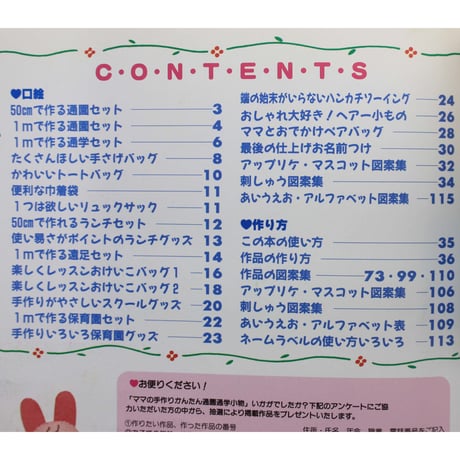 C·O·N·T·E·N·T·S
♥口絵
50cmで作る通園セット 3
1mで作る通園セット 4
1mで作る通学セット 6
たくさんほしい手さげバッグ 8
かわいいトートバッグ 10
便利な巾着袋 11
1つは欲しいリュックサック 11
50cmで作れるランチセット 12
使い易さがポイントのランチグッズ 13
1mで作る遠足セット 14
楽しくレッスンおけいこバッグ1 16
楽しくレッスンおけいこバッグ2 18
手作りがやさしいスクールグッズ 20
1mで作る保育園セット 22
手作りいろいろ保育園グッズ 23
端の始末がいらないハンカチソーイング 24
おしゃれ大好き!ヘアー小もの 26
ママとおでかけペアバッグ 28
最後の仕上げお名前つけ 30
アップリケ・マスコット図案集 32
刺しゅう図案集 34
あいうえお・アルファベット図案集 115
♥作り方
この本の使い方 35
作品の作り方 36
作品の図案集 73・99・110
アップリケ・マスコット図案集 106
刺しゅう図案集 108
あいうえお・アルファベット表 109
ネームラベルの使い方いろいろ 113
♥お便りください!
「ママの手作りかんたん通園通学小物」いかがでしたか?下記のアンケートにご協
力いただいた方の中から、抽選により掲載作品をプレゼントいたします。
①作りたい作品、作った作品の番号